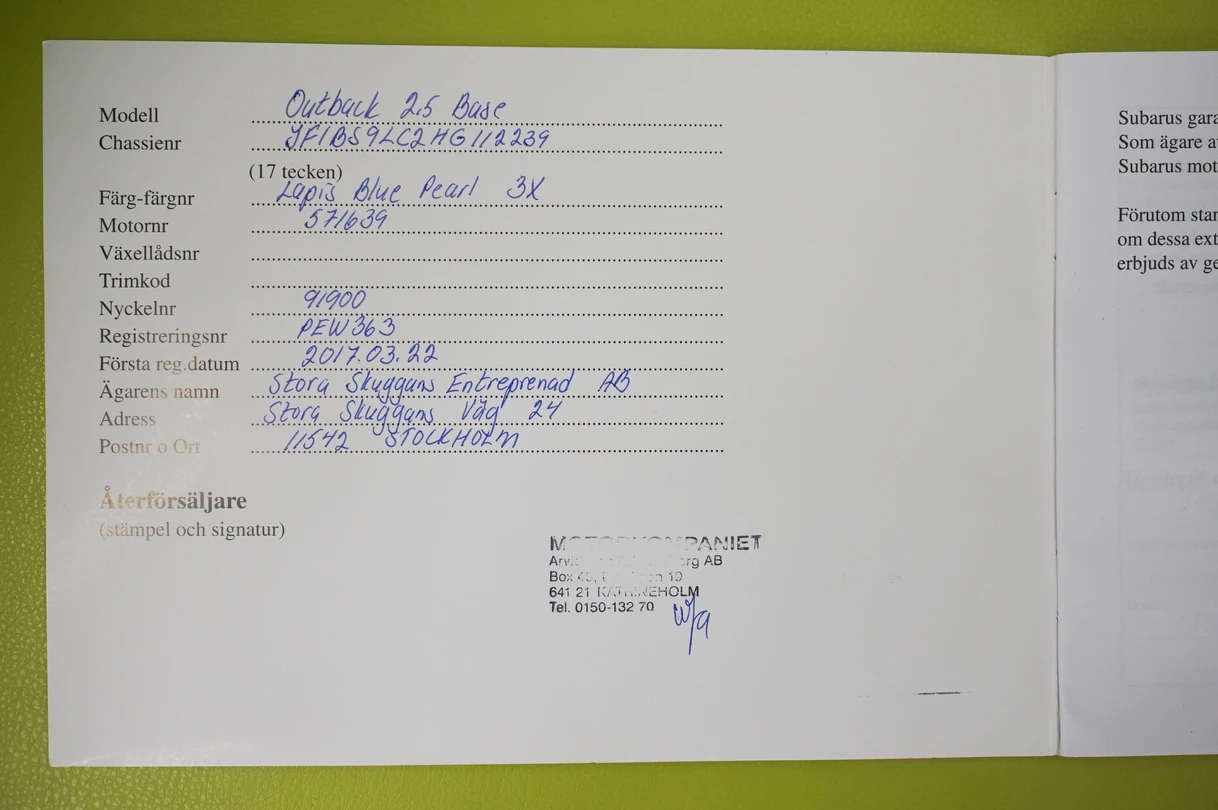 Modell Outback 2.5 Base
Chassienr JF1BS9LC2HG112239
(17 tecken)
Färg-färgnr Lapis Blue Pearl 3X
Motornr 571639
Växellådsnr
Trimkod
Nyckelnr 91900
Registreringsnr PEW363
Första reg.datum 2017.03.22
Ägarens namn Stora Skuggans Entreprenad AB
Adress Stora Skuggans Väg 24
Postnr o Ort 11542 STOCKHOLM
Återförsäljare
(stämpel och signatur)
MOTORKOMPANIET
AB
Box 10
641 21 KATRINEHOLM
Tel. 0150-132 70
Subarus
Som ägare
Subarus
Förutom
om dessa
erbjuds av